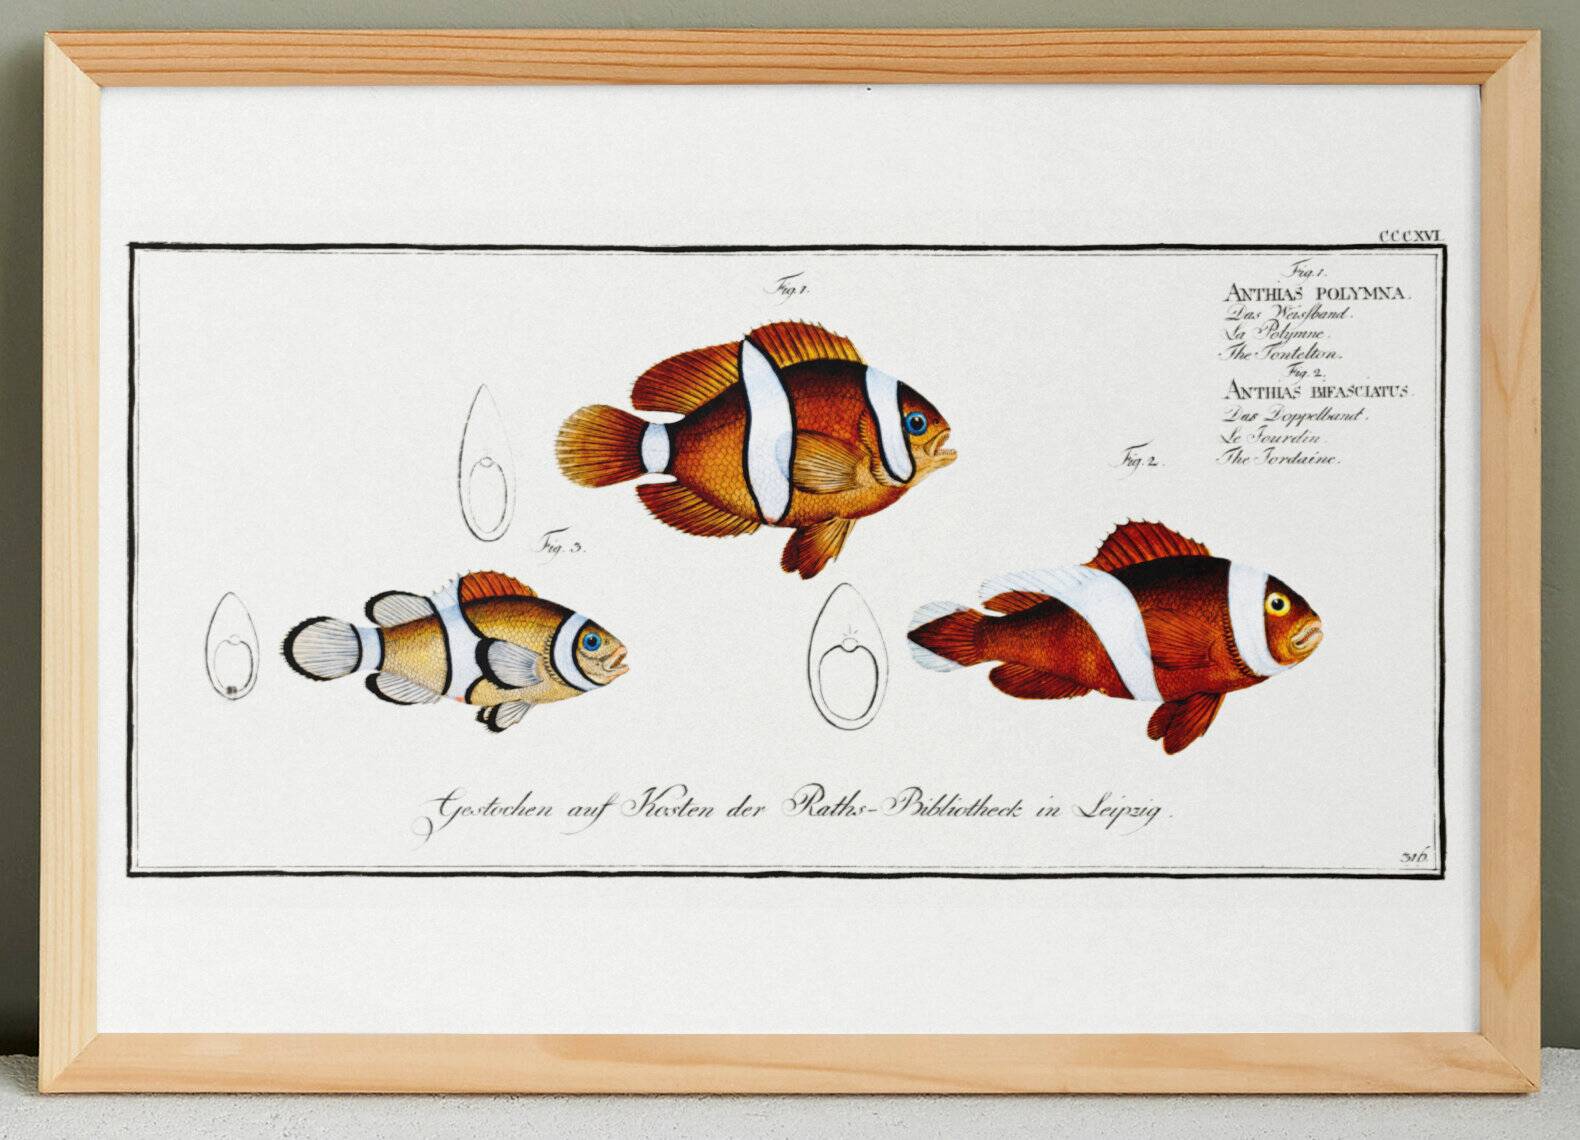 CCCXVI.
Fig. 1.
ANTHIAS POLYMNA.
Das Weisſband.
La Polymne.
The Tontelton.
Fig. 2.
ANTHIAS BIFASCIATUS.
Das Doppelband.
Le Jourdin.
The Jordaine.
Fig. 1.
Fig. 2.
Fig. 3.
Gestochen auf Kosten der Raths-Bibliotheck in Leipzig.
316.